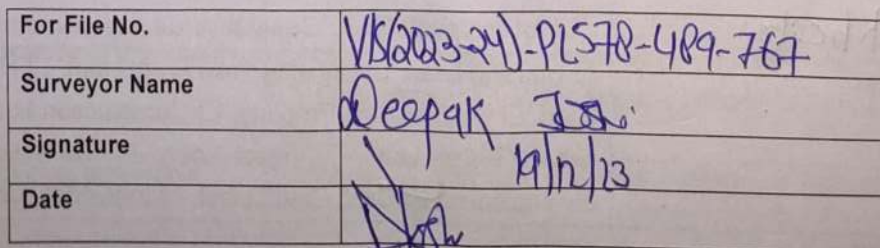 For File No. VIS(2023-24)-PL578-489-767
Surveyor Name Deepak Joshi
Signature 19/12/23
Date